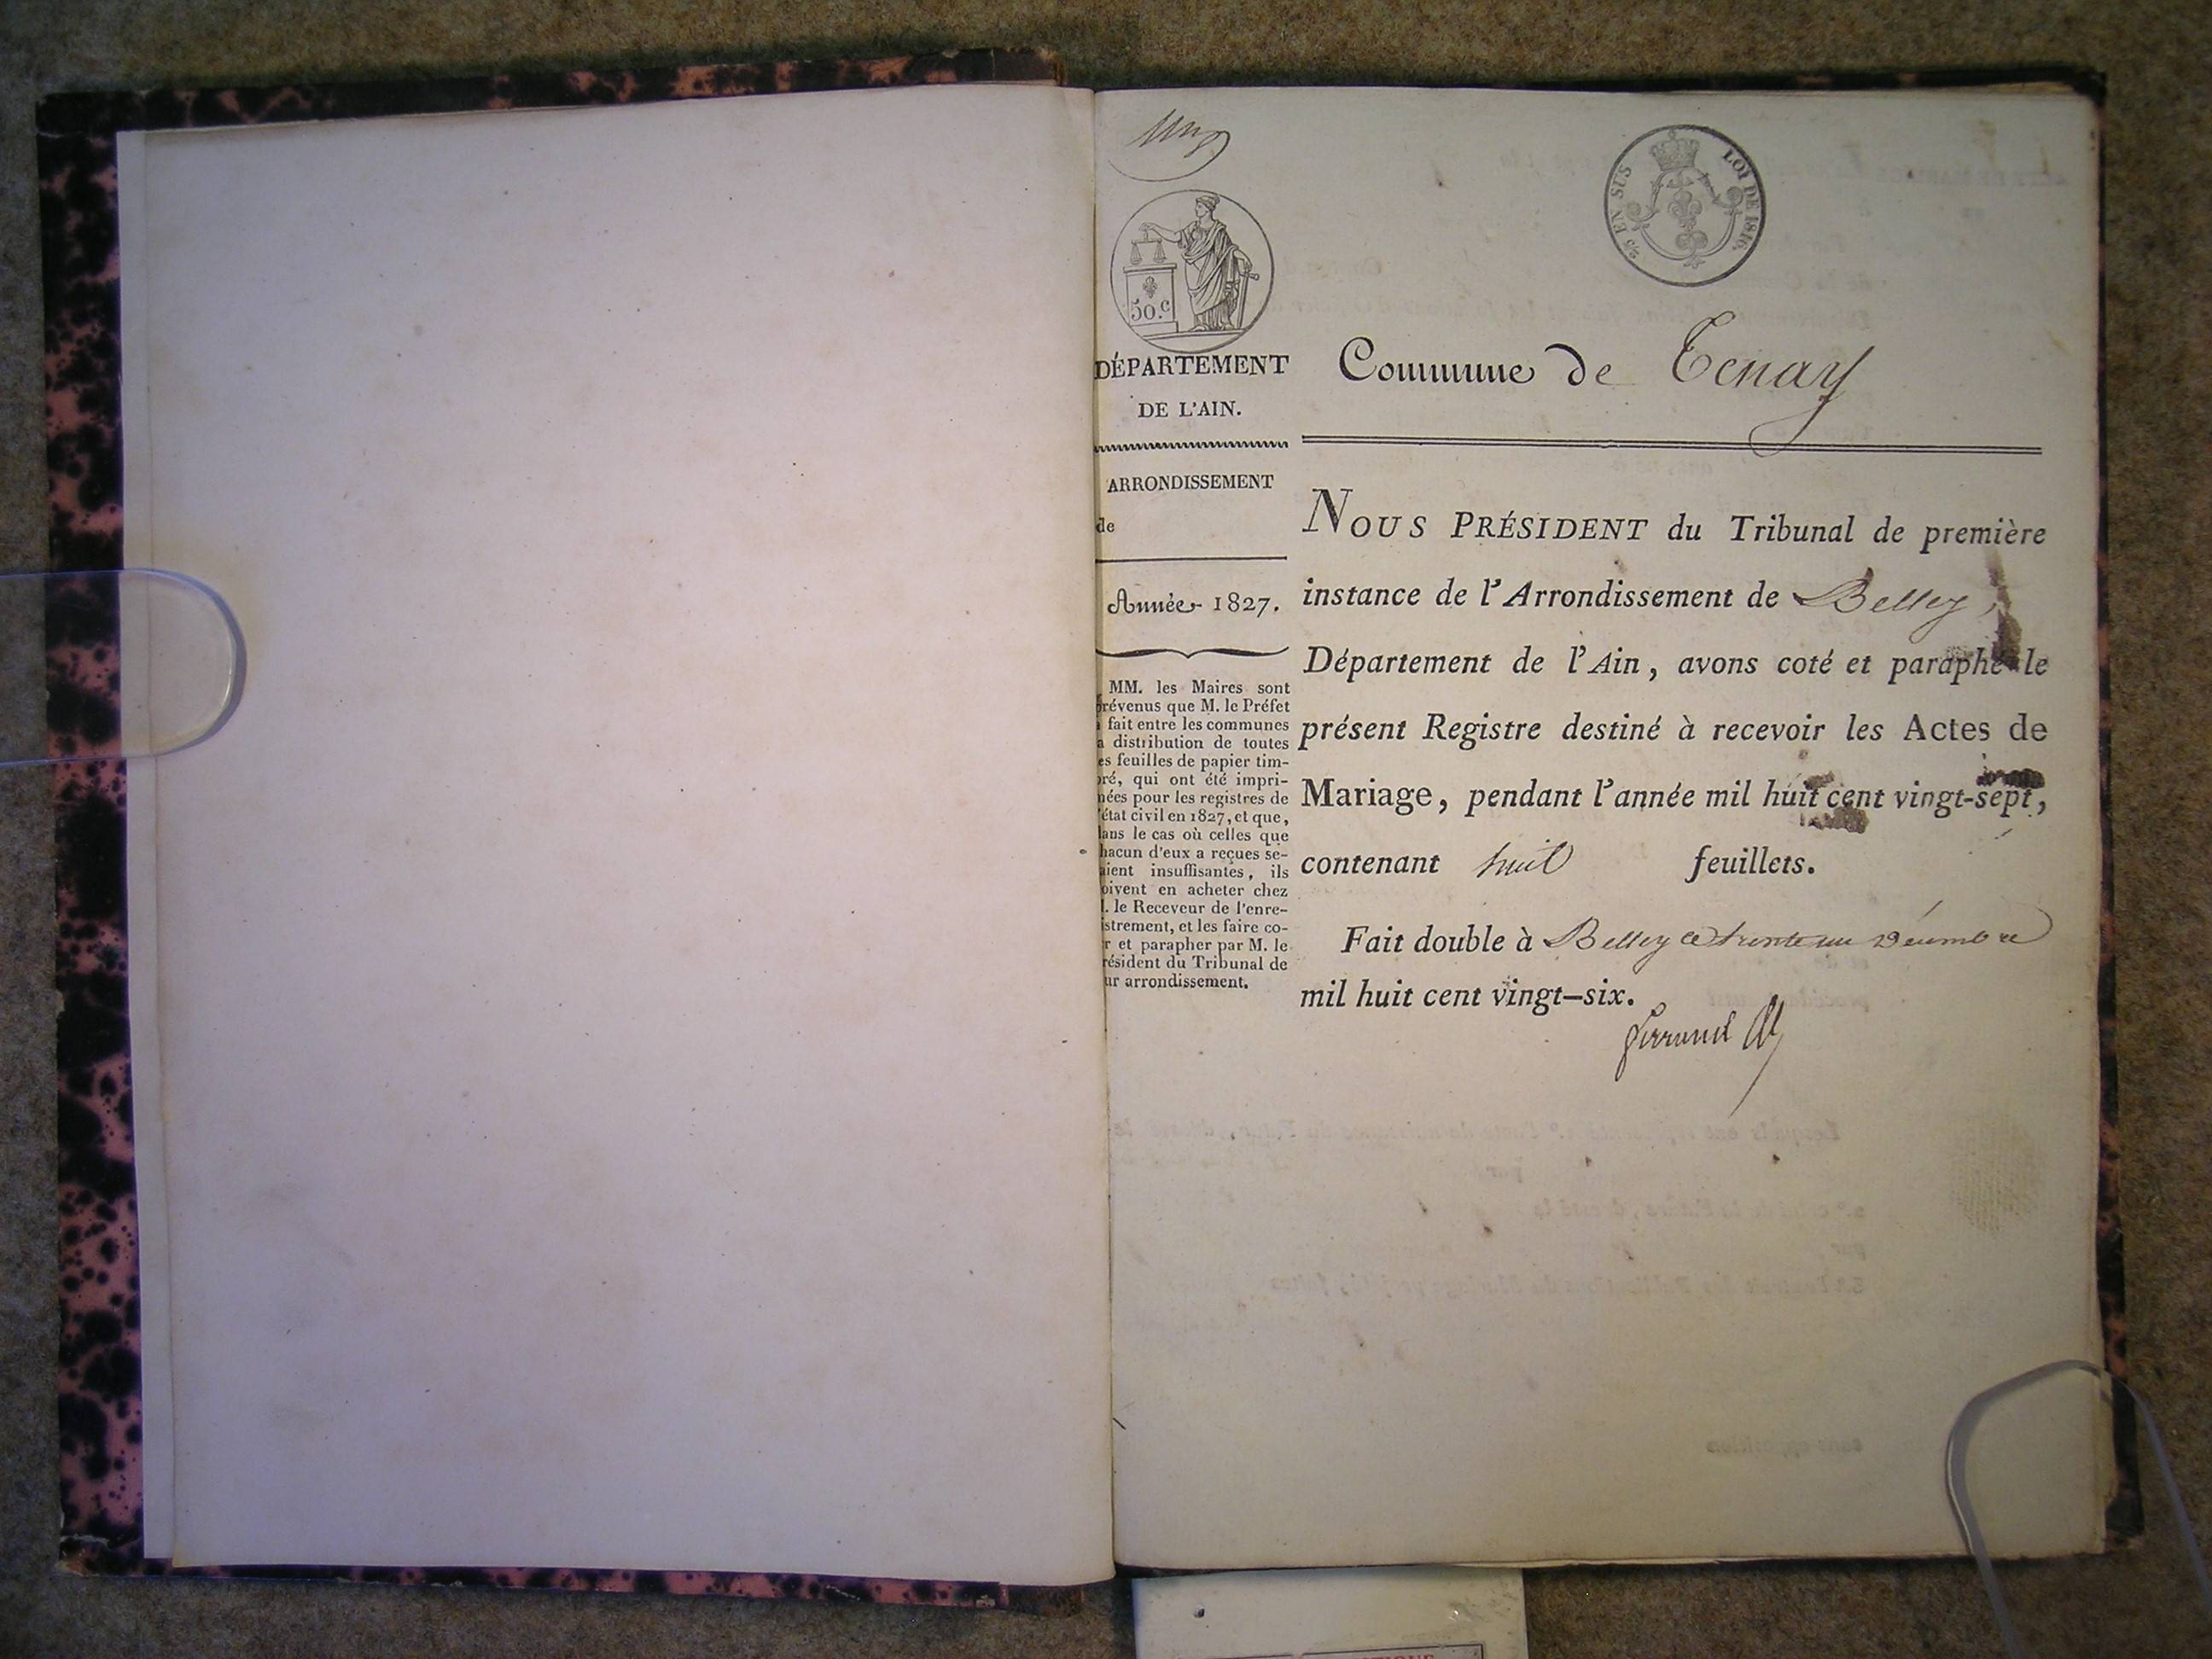 un
50.c
⅖ EN SUS
LOI DE 1816.
DÉPARTEMENT
DE L'AIN.
ARRONDISSEMENT
de
Année 1827.
MM. les Maires sont
révenus que M. le Préfet
fait entre les communes
a distribution de toutes
es feuilles de papier tim-
ré, qui ont été impri-
ées pour les registres de
'état civil en 1827, et que,
ans le cas où celles que
hacun d'eux a reçues se-
aient insuffisantes, ils
oivent en acheter chez
. le Receveur de l'enre-
istrement, et les faire co-
r et parapher par M. le
résident du Tribunal de
ur arrondissement.
Commune de Tenay
NOUS PRÉSIDENT du Tribunal de première
instance de l'Arrondissement de Belley,
Département de l'Ain, avons coté et paraphé le
présent Registre destiné à recevoir les Actes de
Mariage, pendant l'année mil huit cent vingt-sept,
contenant huit feuillets.
Fait double à Belley le trente un Décembre
mil huit cent vingt-six.